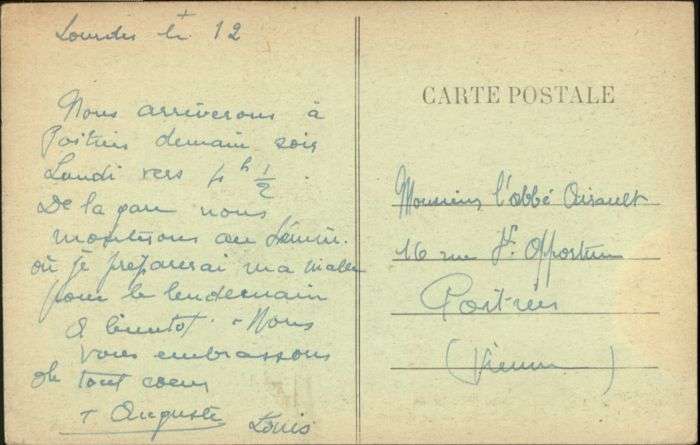 Lourdes le 12
Nous arriverons à
Poitiers demain soir
Lundi vers 4h 1/2
De la gare nous
monterons au Sémin.
où je préparerai ma malle
pour le lendemain
A bientôt. - Nous
vous embrassons
de tout coeur
+ Auguste Louis
CARTE POSTALE
Monsieur l'abbé Airault
16 rue Ste Opportune
Poitiers
(Vienne)